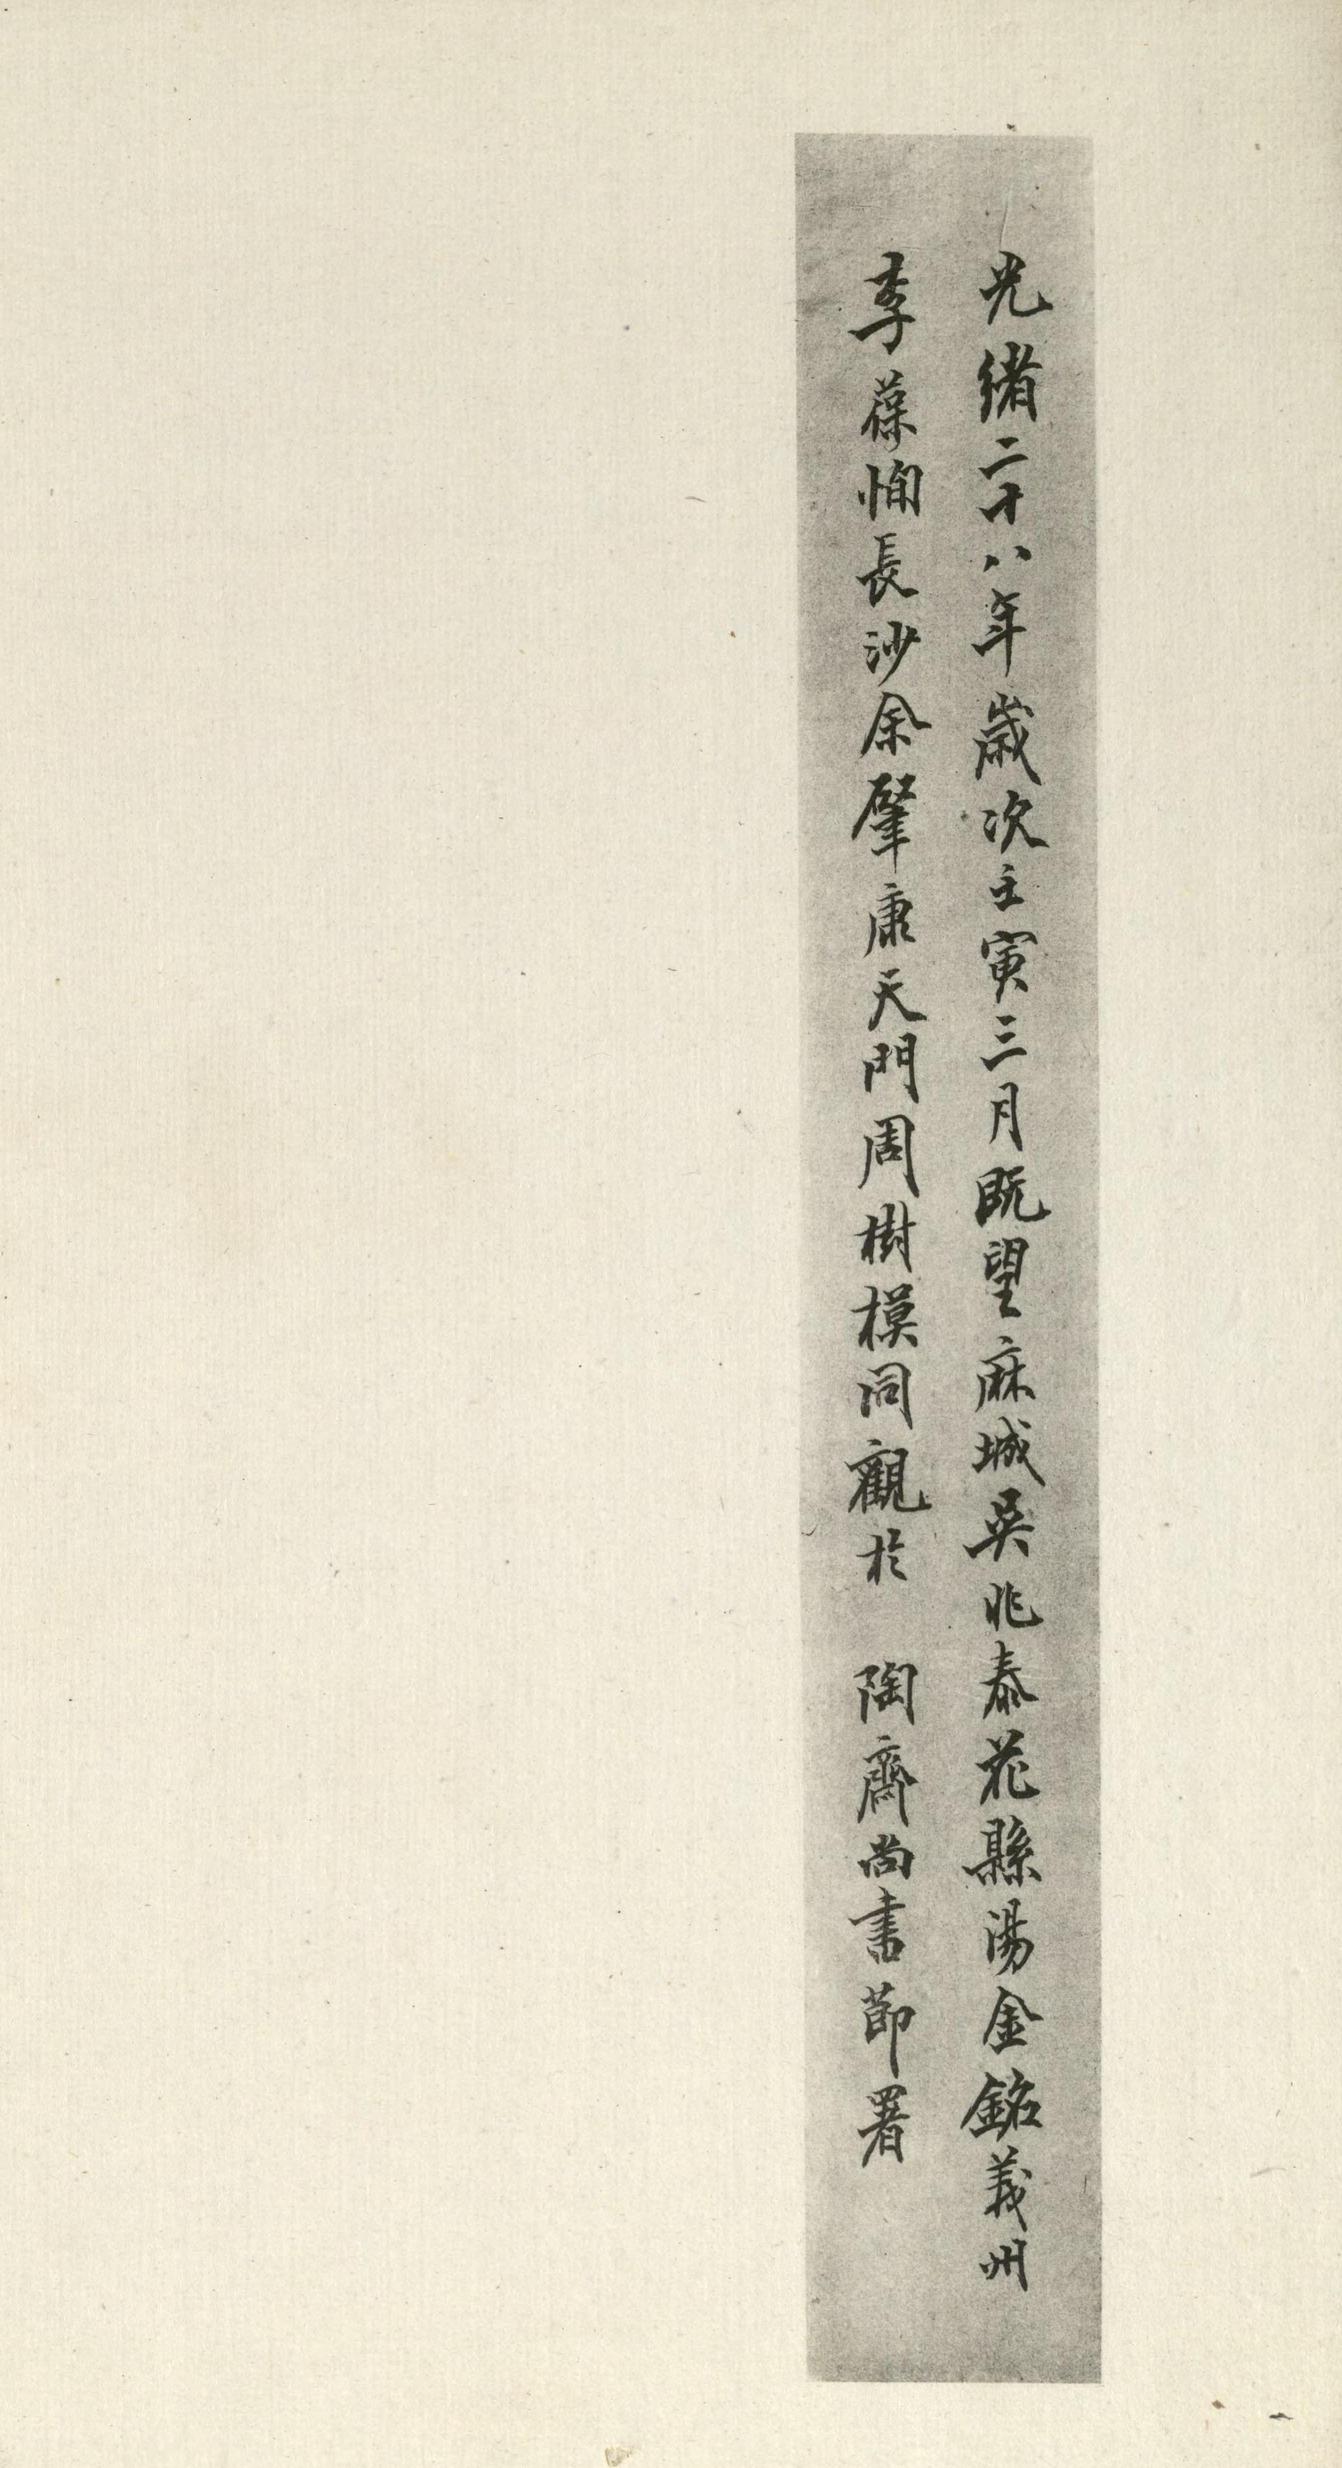 光緒二十八年歲次壬寅三月既望麻城吳兆泰花縣湯金銘義州
李葆恂長沙余肇康天門周樹模同觀於 陶齋尚書節署